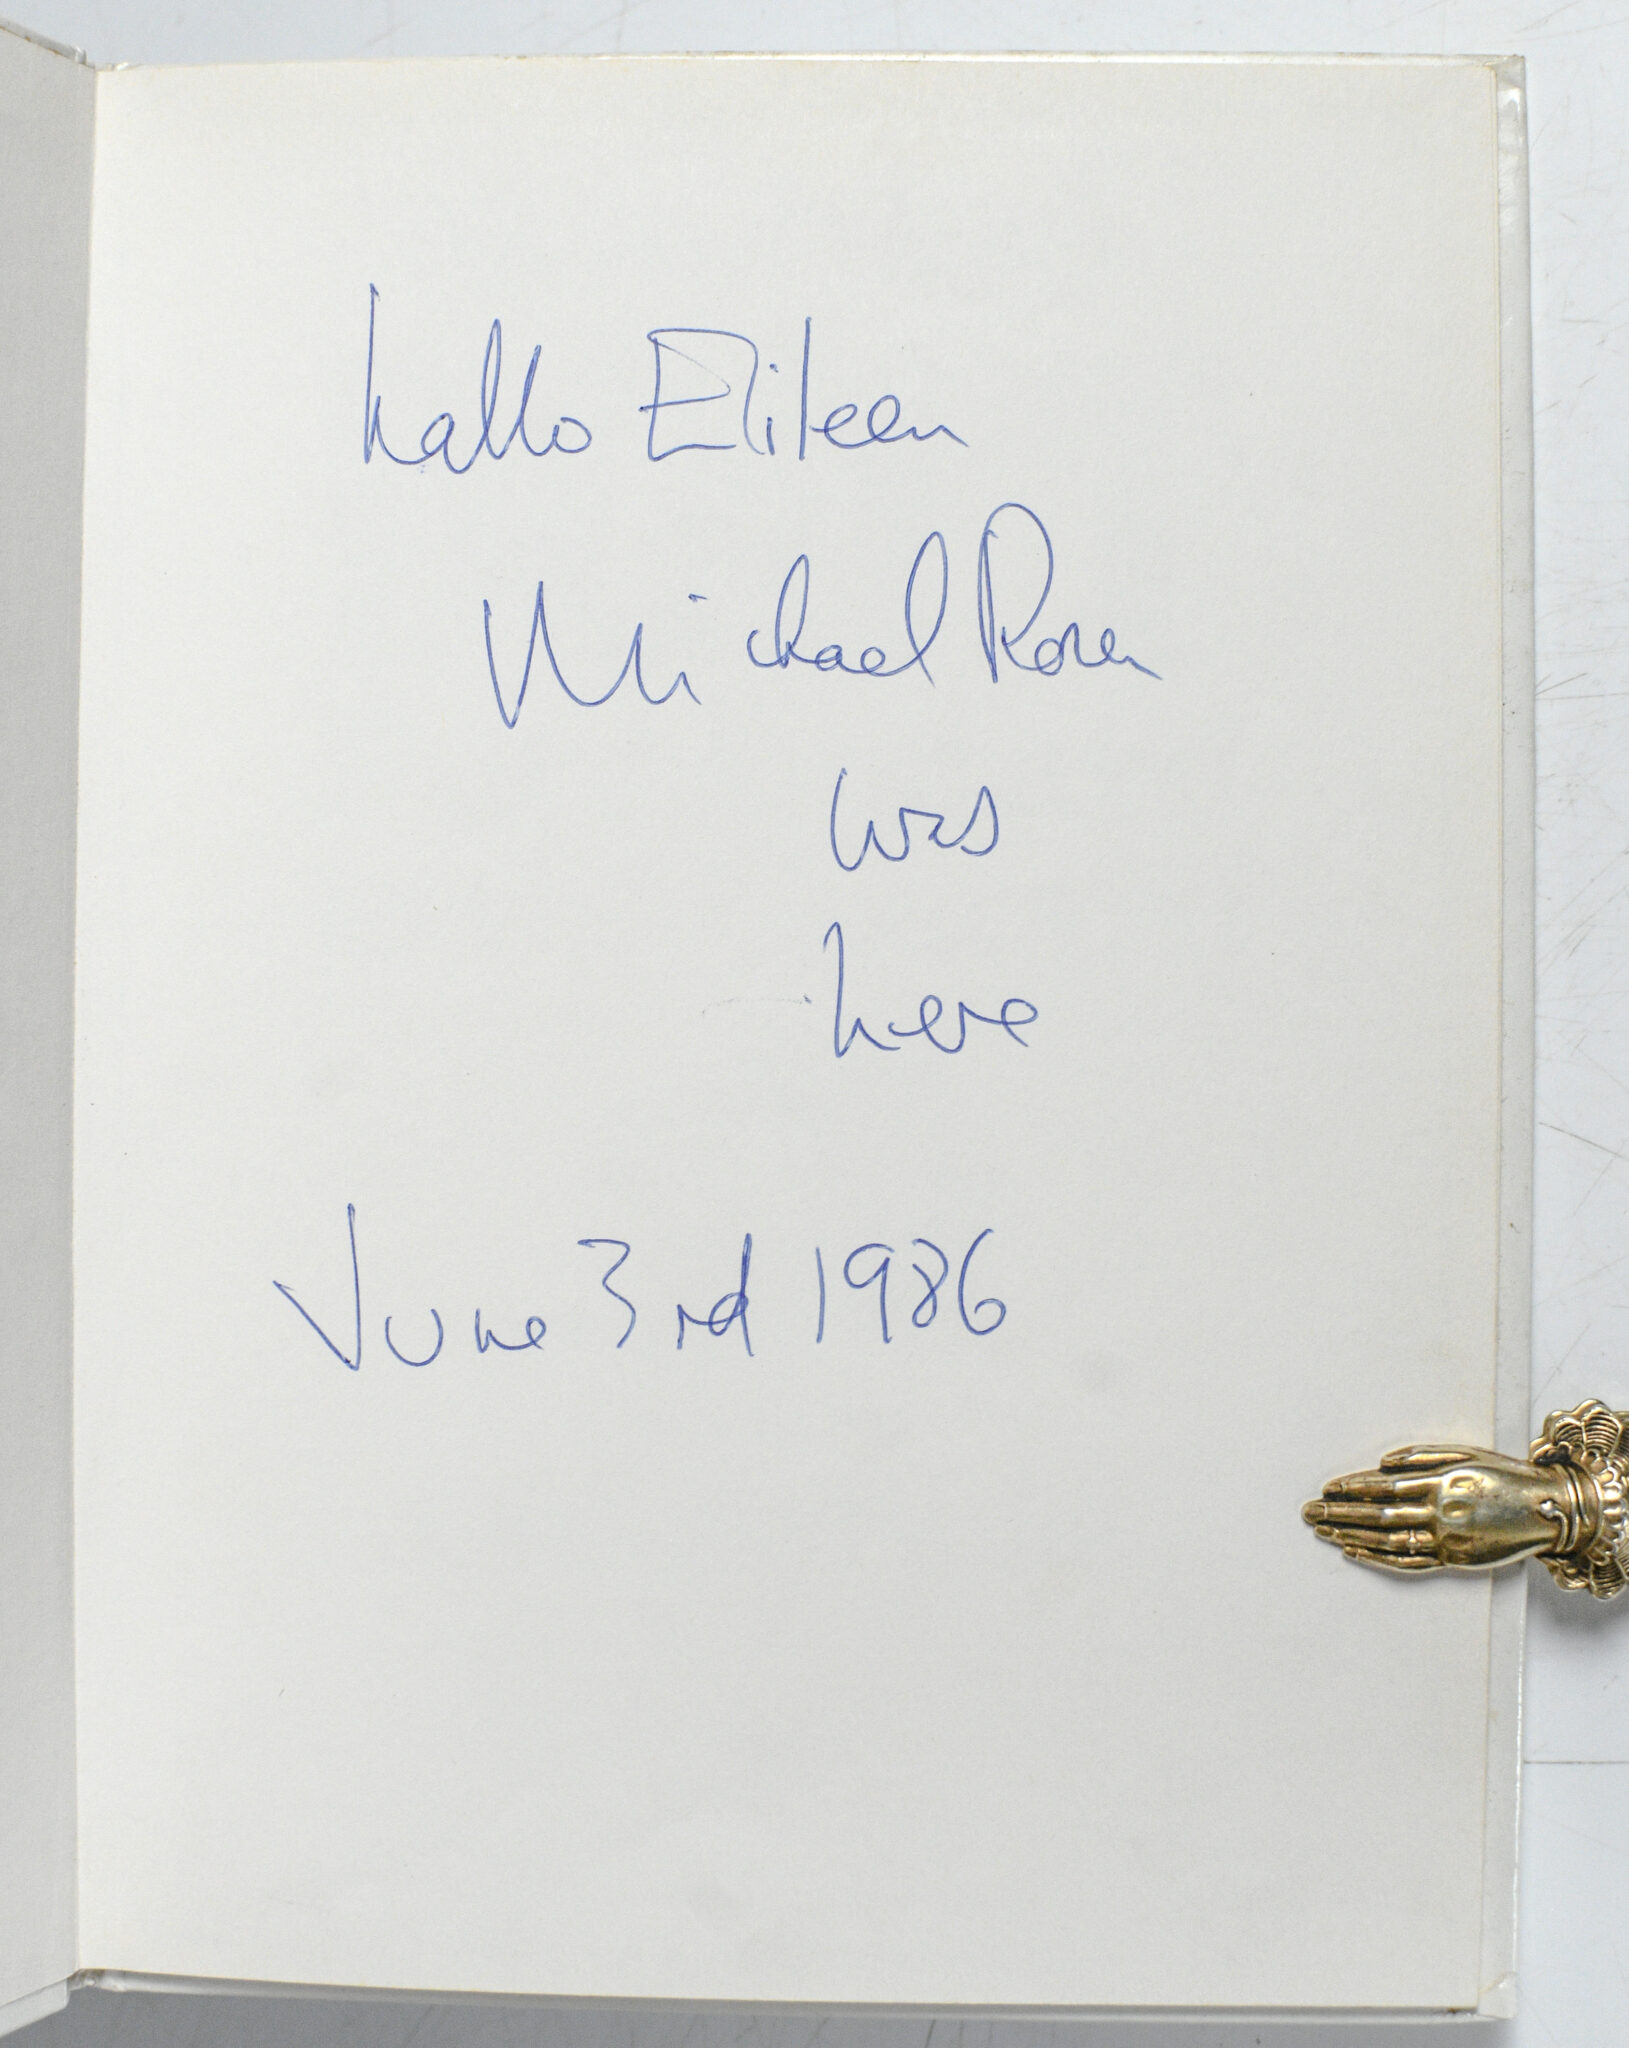 hallo Eileen
Michael Rosen
was
here
June 3rd 1986